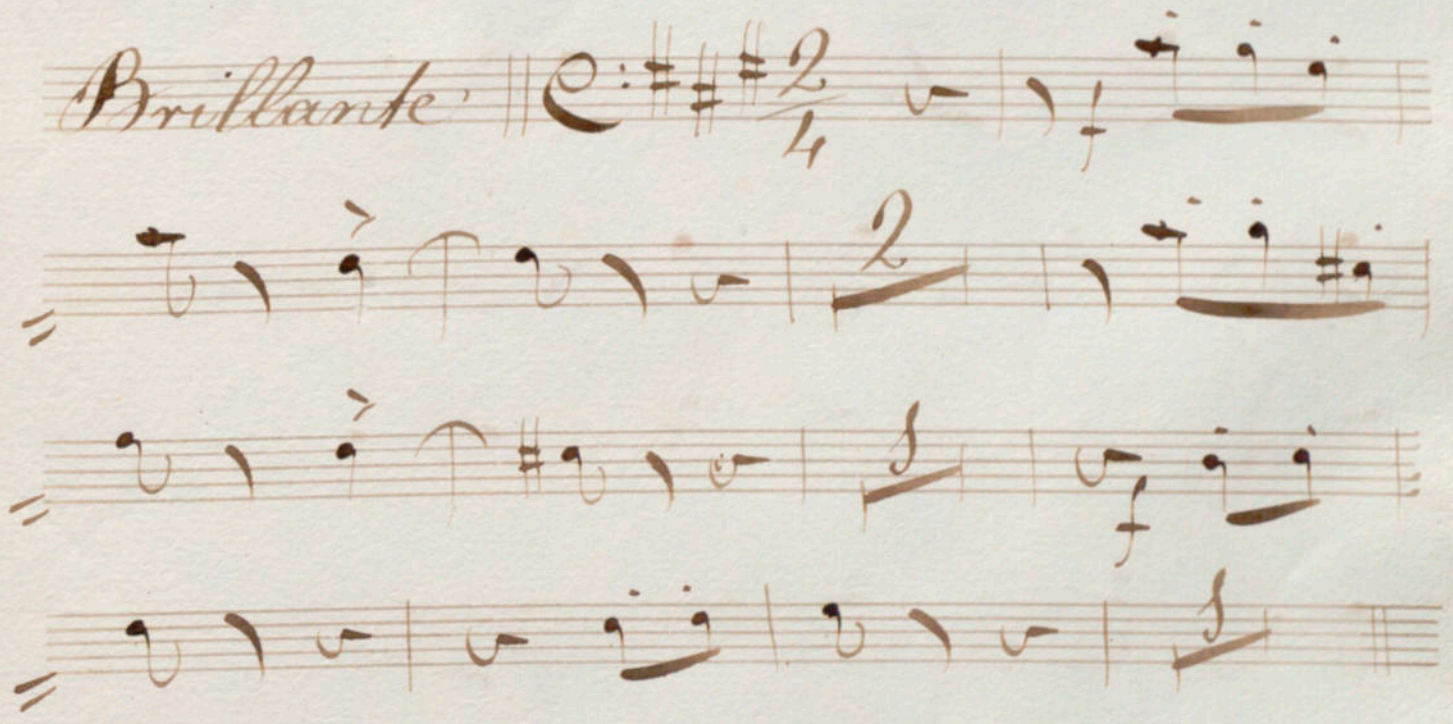 Brillante 2/4 f
2
1 f
1